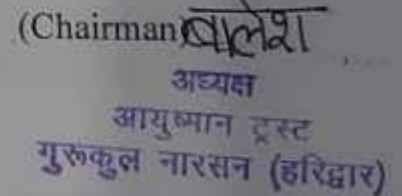 (Chairman) बालेश
अध्यक्ष
आयुष्मान ट्रस्ट
गुरूकुल नारसन (हरिद्वार)